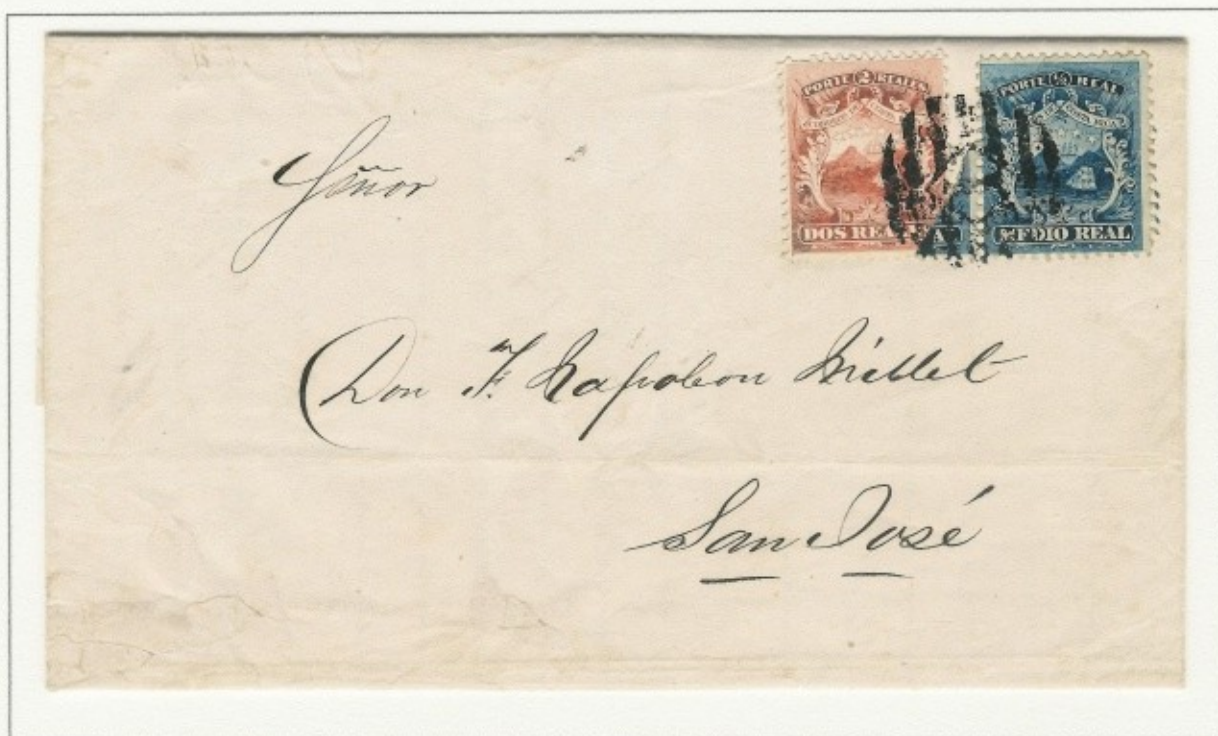 PORTE 2 REALES
DOS REALES
PORTE ½ REAL
MEDIO REAL
Señor
Don F. Napoleon Millet
San José